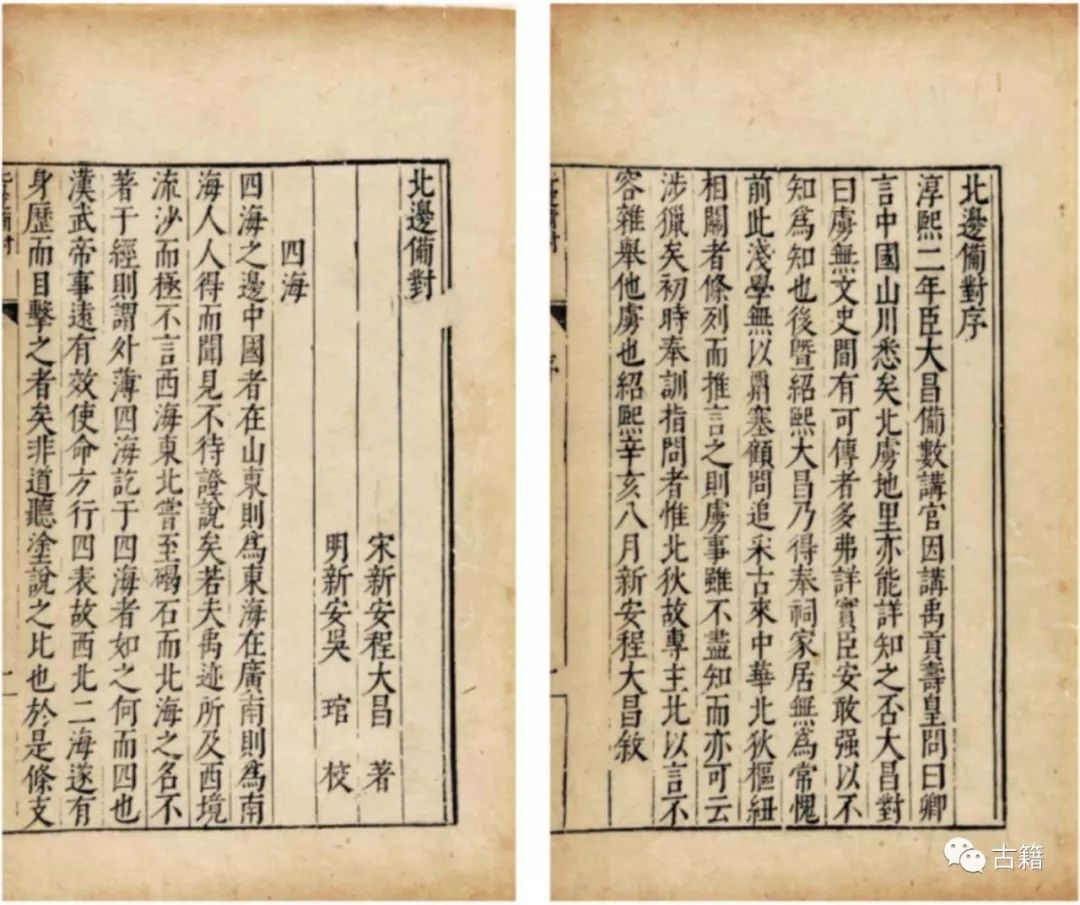 北邊備對序
淳熙二年臣大昌備數講官因講禹貢壽皇問曰卿
言中國山川悉矣北虜地里亦能詳知之否大昌對
曰虜無文史間有可傳者多弗詳實臣安敢强以不
知爲知也後暨紹熙大昌乃得奉祠家居無爲常愧
前此淺學無以罰塞顧問追采古來中華北狄樞紐
相關者條列而推言之則虜事雖不盡知而亦可云
涉獵矣初時奉訓指問者惟北狄故專主北以言不
容雜舉他虜也紹熙辛亥八月新安程大昌敘
北邊備對
宋新安程大昌 著
明新安吳 琯 校
四海
四海之邊中國者在山東則爲東海在廣南則爲南
海人人得而聞見不待證說矣若夫禹迹所及西境
流沙而極不言西海東北嘗至碣石而北海之名不
著于經則謂外薄四海訖于四海者如之何而四也
漢武帝事遠有效使命方行四表故西北二海遂有
身歷而目擊之者矣非道聽塗說之比也於是條支
序
一
一
古籍